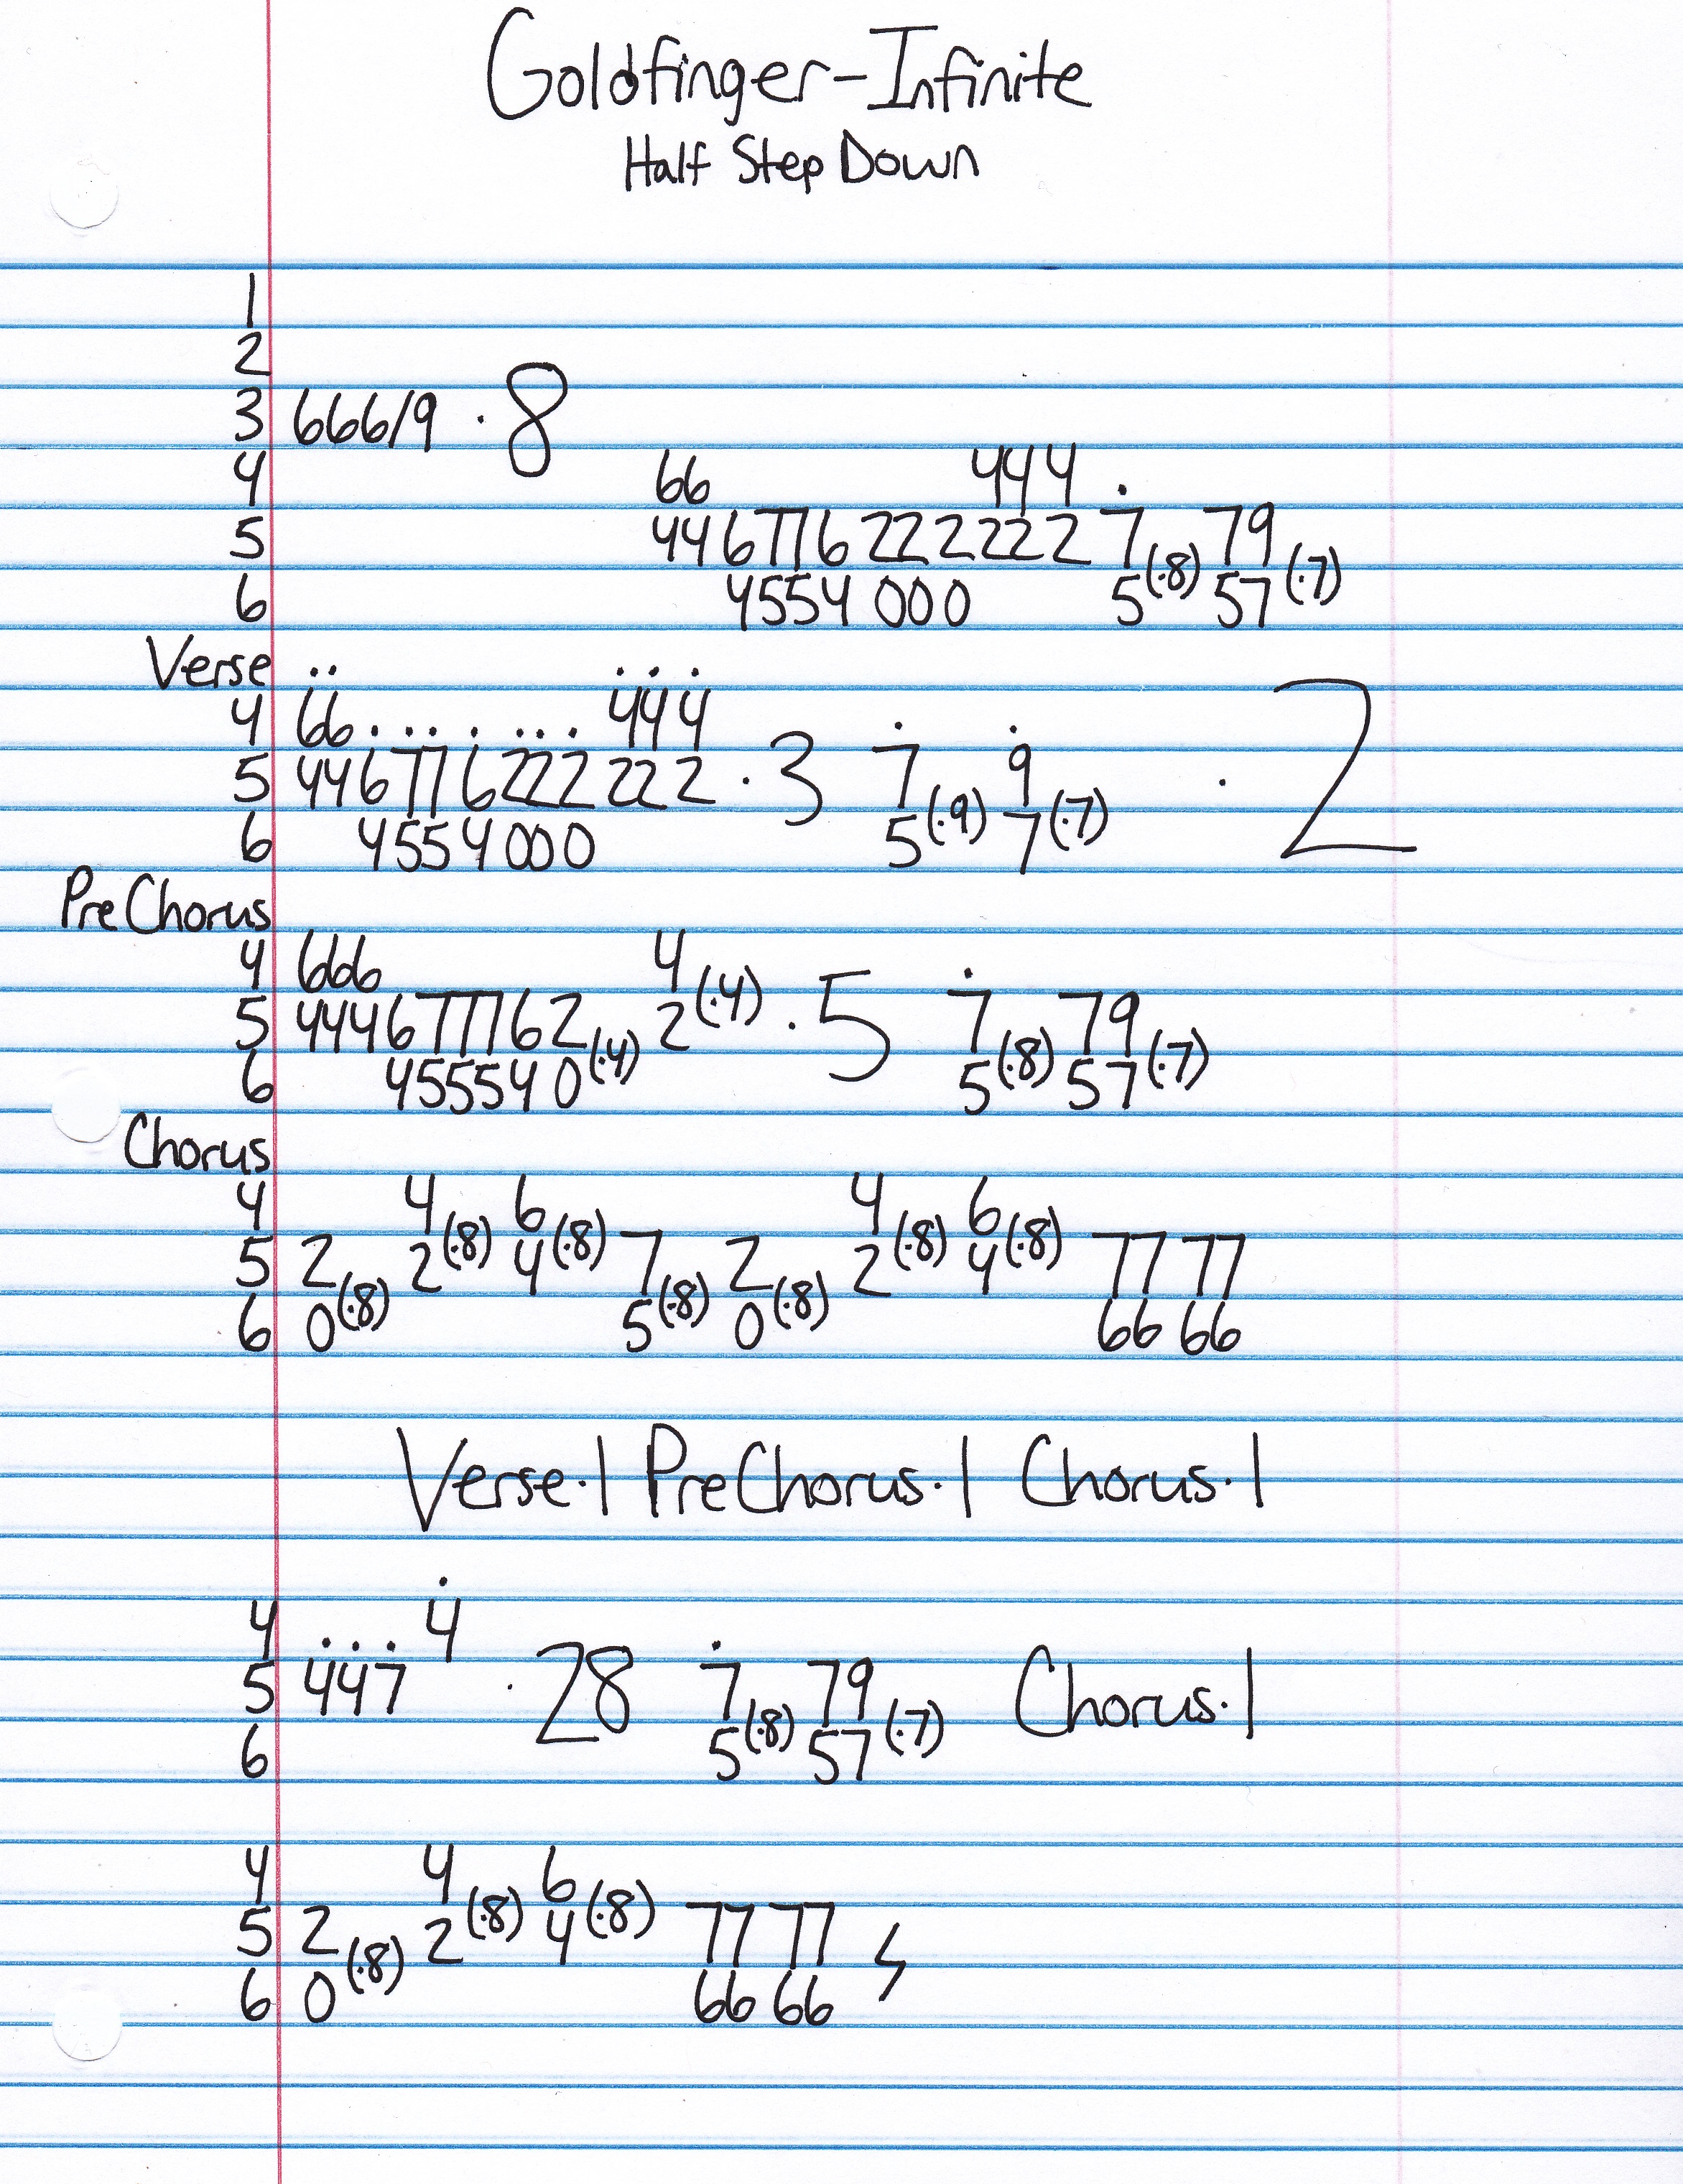 Goldfinger-Infinite
Half Step Down
1
2
3 666/9 ·8
4 66 444 .
5 446776222222 2 7 79
6 4554 000 5(·8) 57(·7)
Verse .. ...
4 66....... 444 . .
5 446776222 222 ·3 7 9 ·2
6 4554000 5(·9) 7(·7)
PreChorus
4 666 4 .
5 444677762 2(·4) ·5 7 79
6 455540(·4) 5(·8) 57(·7)
Chorus
4 4 6 4 6
5 2 2(·8) 4(·8) 7 2 2(·8) 4(·8) 77 77
6 0(·8) 5(·8) 0(·8) 66 66
Verse·1 PreChorus·1 Chorus·1
4 ... 4 .
5 447 ·28 7 79 Chorus·1
6 5(·8) 57(·7)
4 4 6
5 2 2(·8) 4(·8) 77 77
6 0(·8) 66 66